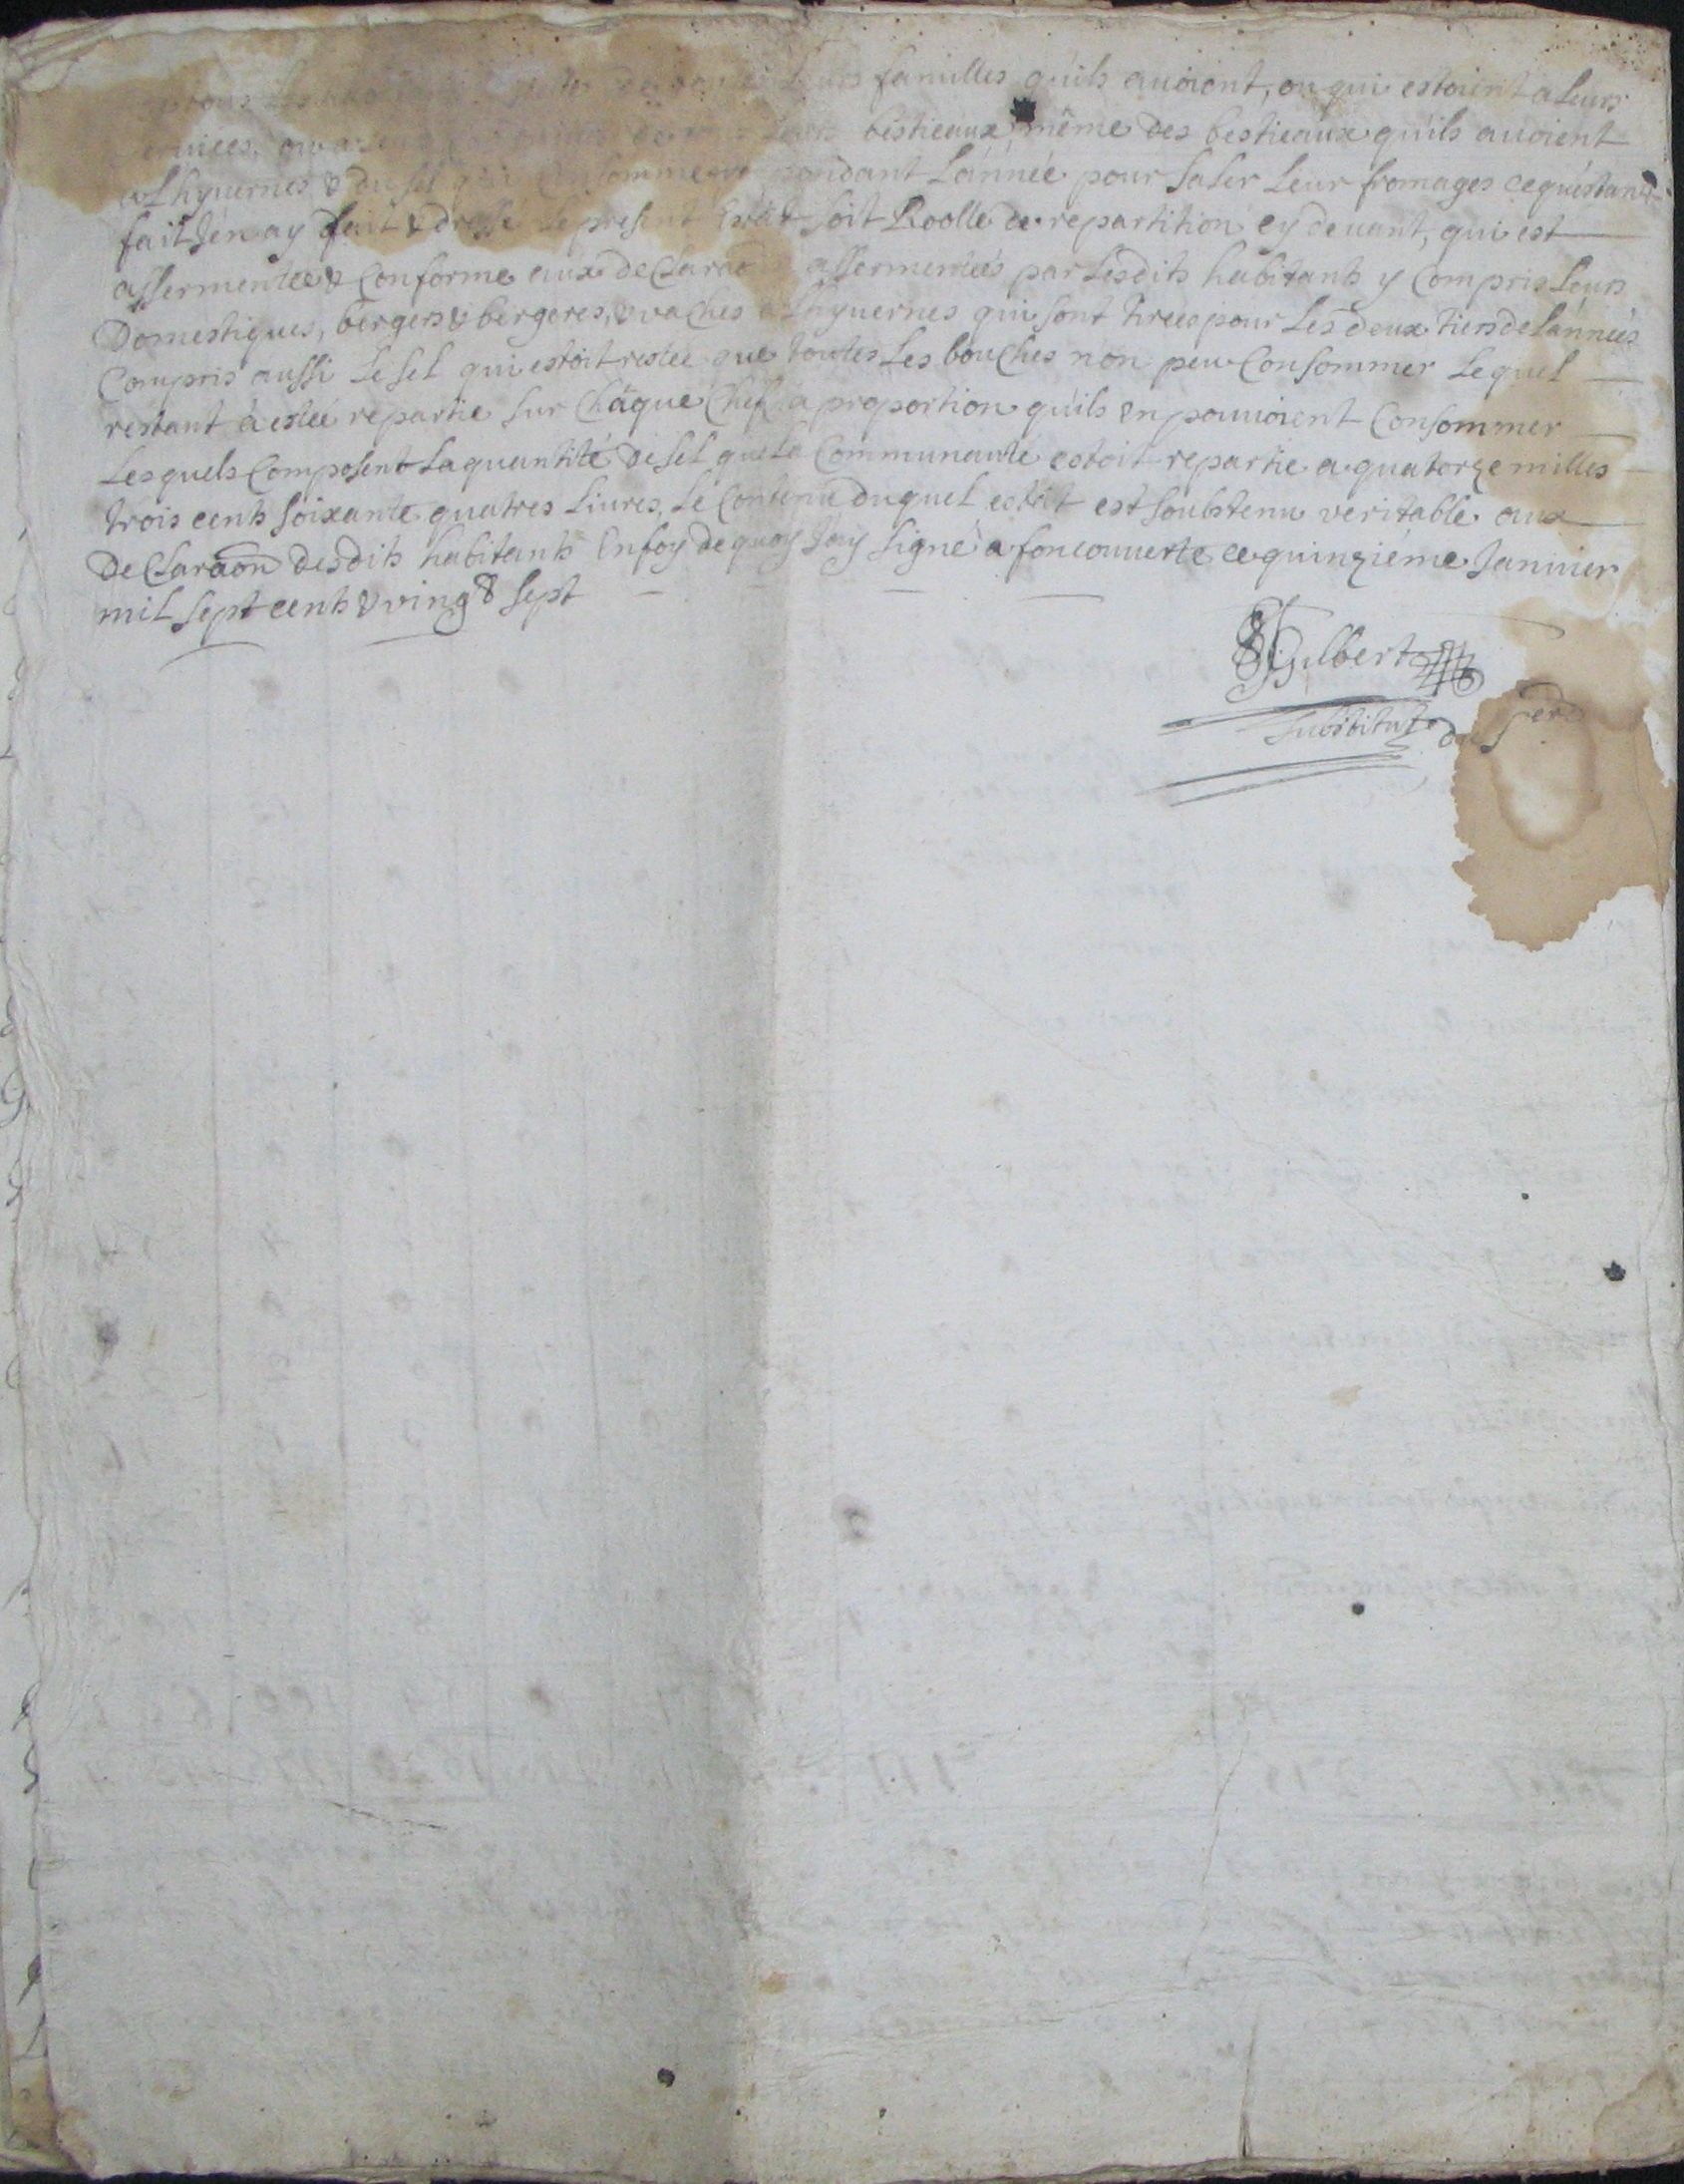 familles qu'ils avoiont, ou qui estoint a Leurs
bestieaux, même des bestieaux qu'ils avoient
Lhyuernes & du sel pendant L'année pour saler Leur fromages ce qu'estant
fait J'en ay fait & dressé Le present Estat soit Roolle de repartition cy devant, qui est
assermentée & Conforme aux assermentées par Lesdits habitants y Compris Leurs
Domestiques, bergers & bergeres, & vaches Lhyuernes qui sont tirees pour Les deux tiers de L'année
Compris aussi Le sel qui estoit restée que toutes Les bouches n'on peu Consommer Lequel
restant à estée repartie sur Châque Chef a proportion qu'ils en pouvoient Consommer
Lesquels Composent La quantité de sel que La Communauté estoit repartie a quatorze milles
trois cents soixante quatres Livres, Le Contenu duquel estat est soubstenu veritable aux
De Claraõn desdits habitants En foy de quoy J'ay signé a foncouverte ce quinziéme Janvier
mil sept cents & ving & sept
Gilbert
substitut